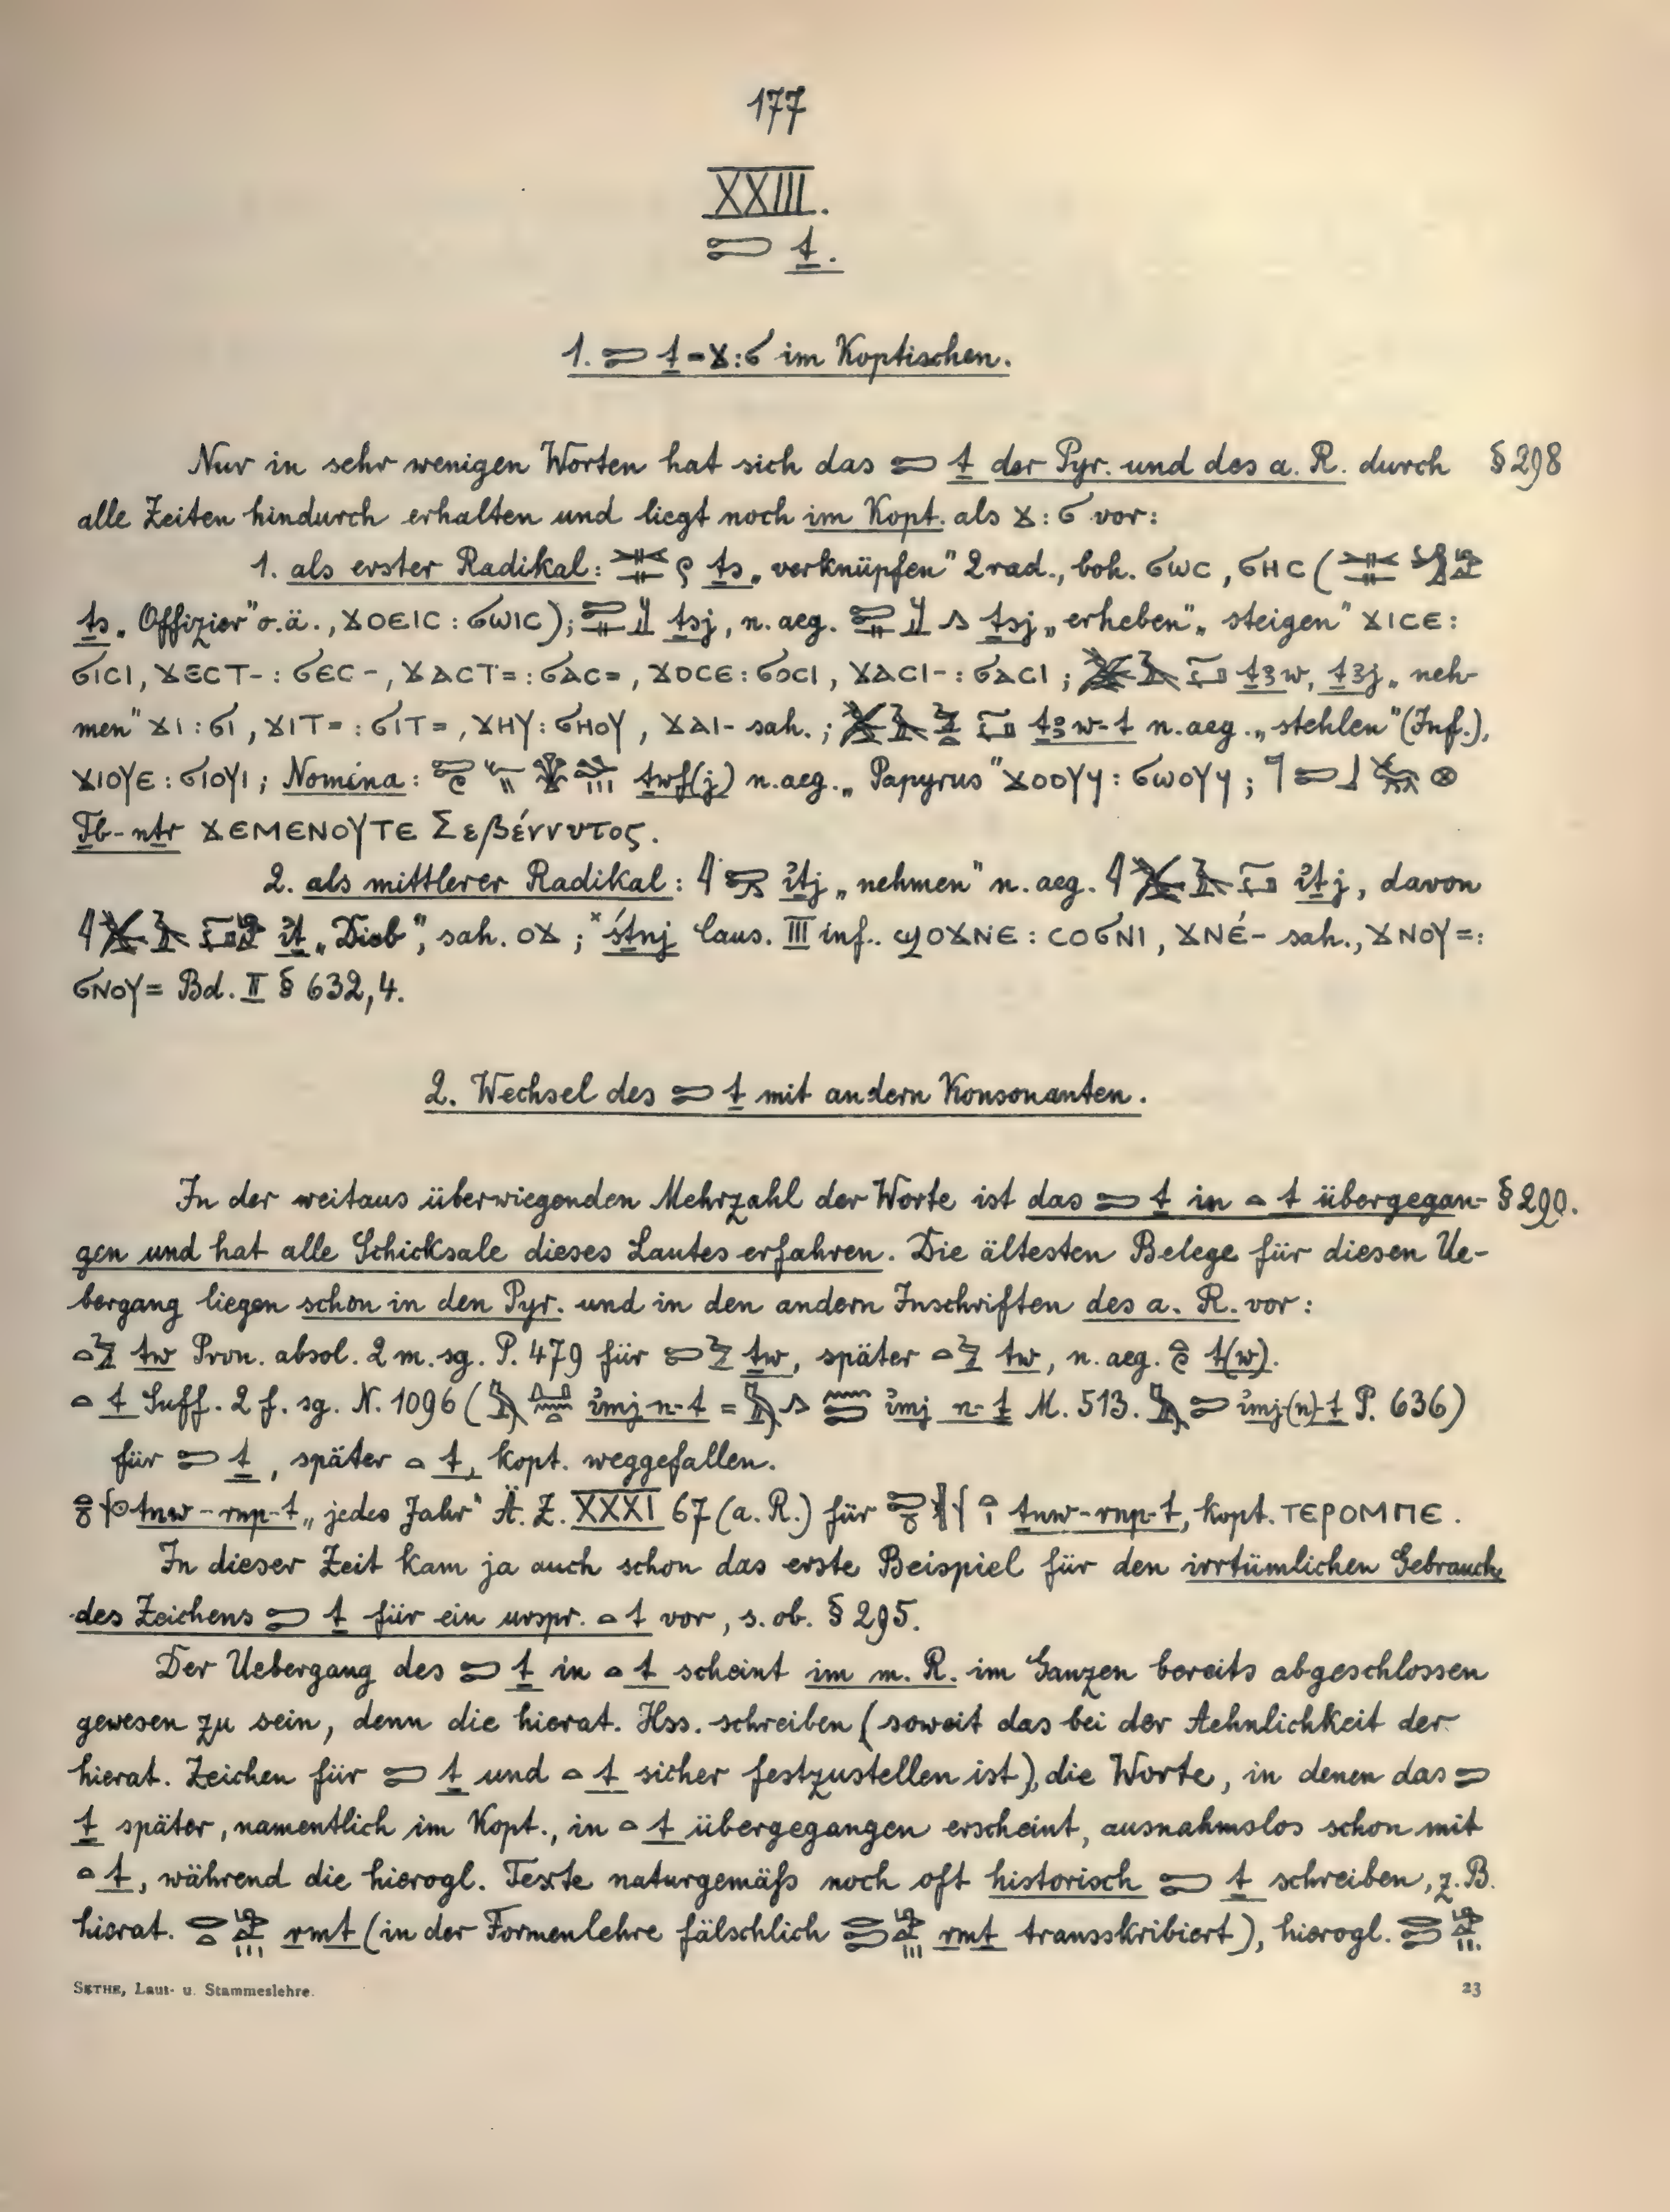 177
XXIII.
𓍿 ṯ.
1. 𓍿 ṯ = ϫ : ϭ im Koptischen.
Nur in sehr wenigen Worten hat sich das 𓍿 ṯ der Pyr. und des a. R. durch § 298
alle Zeiten hindurch erhalten und liegt noch im Kopt. als ϫ : ϭ vor:
1. als erster Radikal: ṯs „verknüpfen" 2rad., boh. ϭⲱⲥ, ϭⲏⲥ (
ṯs „Offizier" o.ä., ϫⲟⲉⲓⲥ : ϭⲱⲓⲥ); ṯsj, n. aeg. ṯsj „erheben", „steigen" ϫⲓⲥⲉ :
ϭⲓⲥⲓ, ϫⲉⲥⲧ- : ϭⲉⲥ-, ϫⲁⲥⲧ= : ϭⲁⲥ=, ϫⲟⲥⲉ : ϭⲟⲥⲓ, ϫⲁⲥⲓ- : ϭⲁⲥⲓ ; ṯꜣw, ṯꜣj „neh-
men" ϫⲓ : ϭⲓ, ϫⲓⲧ= : ϭⲓⲧ=, ϫⲏⲩ : ϭⲏⲟⲩ, ϫⲁⲓ- sah. ; ṯꜣw-t n. aeg. „stehlen" (Inf.),
ϫⲓⲟⲩⲉ : ϭⲓⲟⲩⲓ ; Nomina : ṯwf(j) n. aeg. „Papyrus" ϫⲟⲟⲩϥ : ϭⲱⲟⲩϥ ; 𓊹𓍿𓃀
Ṯb-nṯr ϫⲉⲙⲉⲛⲟⲩⲧⲉ Σεβέννυτος.
2. als mittlerer Radikal: 𓇋 ꞽṯj „nehmen" n. aeg. 𓇋 ꞽṯj, davon
𓇋 ꞽṯ „Dieb", sah. ⲟϫ ; ˣśṯnj Caus. III inf. ϣⲟϫⲛⲉ : ⲥⲟϭⲛⲓ, ϫⲛⲉ́- sah., ϫⲛⲟⲩ= :
ϭⲛⲟⲩ= Bd. II § 632, 4.
2. Wechsel des 𓍿 ṯ mit andern Konsonanten.
In der weitaus überwiegenden Mehrzahl der Worte ist das 𓍿 ṯ in 𓏏 t übergegan- § 290.
gen und hat alle Schicksale dieses Lautes erfahren. Die ältesten Belege für diesen Ue-
bergang liegen schon in den Pyr. und in den andern Inschriften des a. R. vor:
𓏏𓅱 tw Pron. absol. 2 m. sg. P. 479 für 𓍿𓅱 ṯw, später 𓏏𓅱 tw, n. aeg. t(w).
𓏏 t Suff. 2 f. sg. N. 1096 ( ꞽmj n-t = ꞽmj n-ṯ M. 513. ꞽmj-(n)-ṯ P. 636)
für 𓍿 ṯ, später 𓏏 t, kopt. weggefallen.
tnw-rnp-t „jedes Jahr" Ä. Z. XXXI 67 (a. R.) für ṯnw-rnp-t, kopt. ⲧⲉⲣⲟⲙⲡⲉ.
In dieser Zeit kam ja auch schon das erste Beispiel für den irrtümlichen Gebrauch
des Zeichens 𓍿 ṯ für ein urspr. 𓏏 t vor, s. ob. § 295.
Der Uebergang des 𓍿 ṯ in 𓏏 t scheint im m. R. im Ganzen bereits abgeschlossen
gewesen zu sein, denn die hierat. Hss. schreiben (soweit das bei der Aehnlichkeit der
hierat. Zeichen für 𓍿 ṯ und 𓏏 t sicher festzustellen ist), die Worte, in denen das 𓍿
ṯ später, namentlich im Kopt., in 𓏏 t übergegangen erscheint, ausnahmslos schon mit
𓏏 t, während die hierogl. Texte naturgemäß noch oft historisch 𓍿 ṯ schreiben, z. B.
hierat. 𓂋𓏏 rmt (in der Formenlehre fälschlich 𓂋𓍿 rmṯ transskribiert), hierogl. 𓂋𓍿
SETHE, Laut- u. Stammeslehre. 23